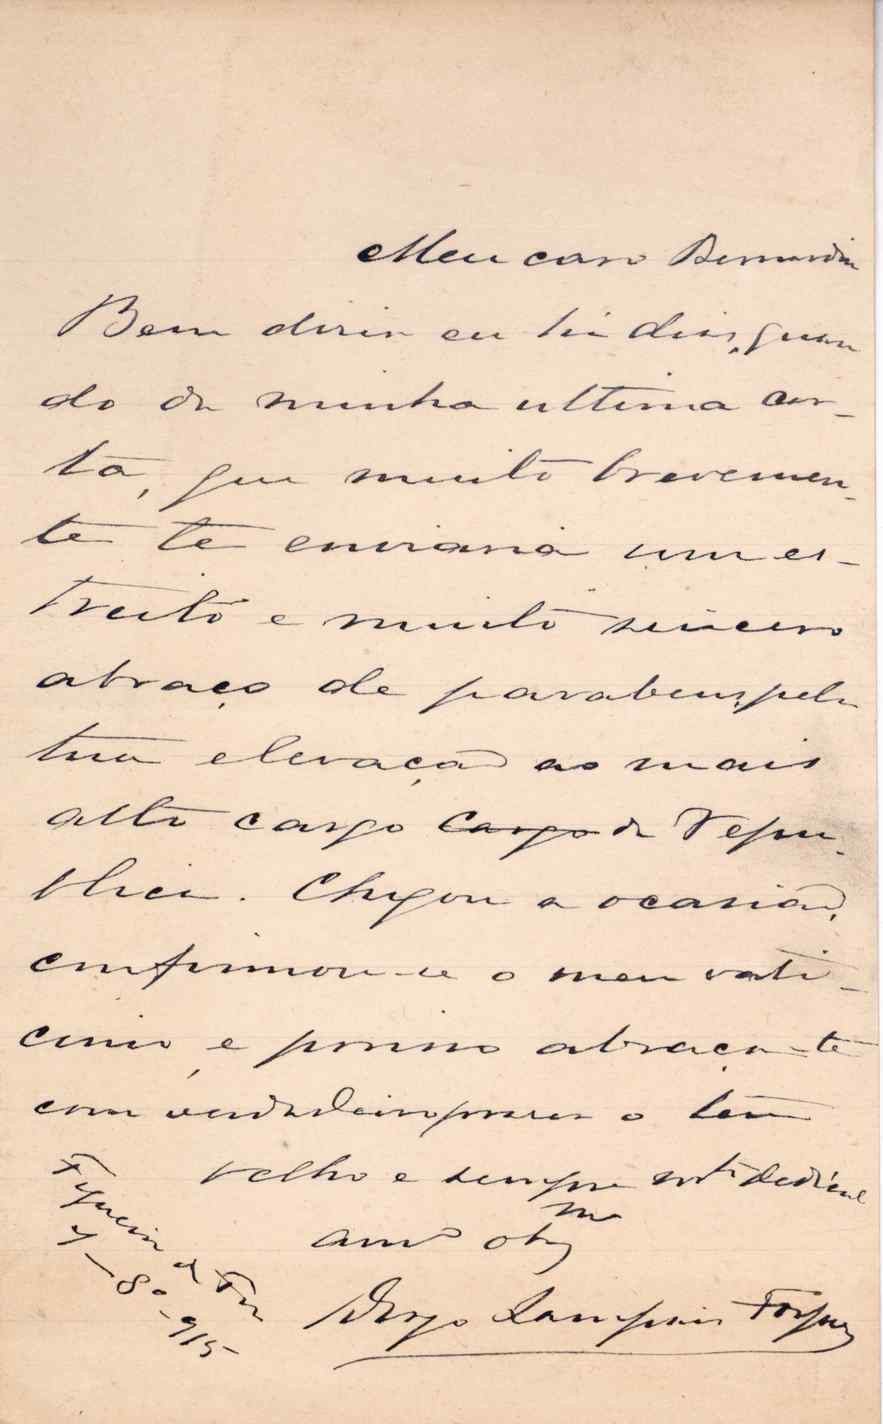 Meu caro Bernardino
Bem dizia eu ha dias, quan
do da minha ultima car-
ta, que muito brevemen-
te te enviaria um es-
treito e muito sincero
abraço de parabens, pela
tua elevação ao mais
alto cargo Cargo da Repu-
blica. Chegou a ocasião,
confirmou-se o meu vati-
cinio, e por isso abraça-te
com verdadeiro prazer o teu
velho e sempre mto
amo obgmo
Figueira da Foz
8º-915